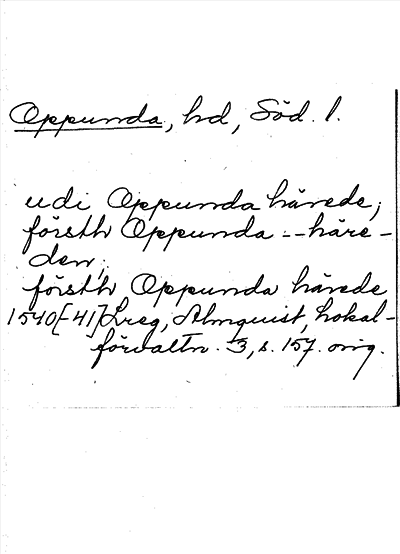 Oppunda, hd, Söd. l.
udi Oppunda härede;
försth Oppunda -- häre-
den;
försth Oppunda härede
1540[-41] Lreg, Almquist, Lokal-
förvaltn. 3, s. 157. orig.